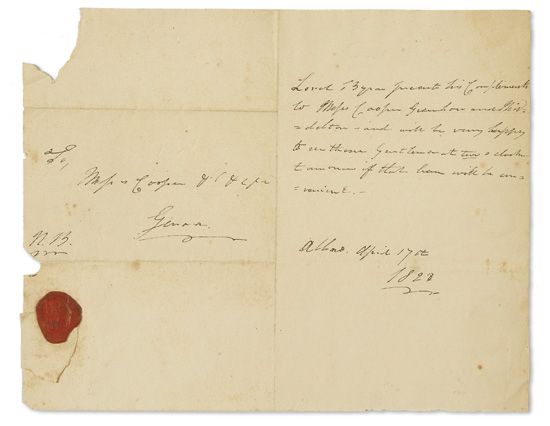 To,
Messrs Cooper & C & &c
Genoa
N. B.
Lord Byron presents his Compliments
to Messrs Cooper Grenhow and
= dleton - and will be very happy
to see those Gentlemen at two o clock
if that hour will be con-
= venient. -
Albaro. April 17th
1823